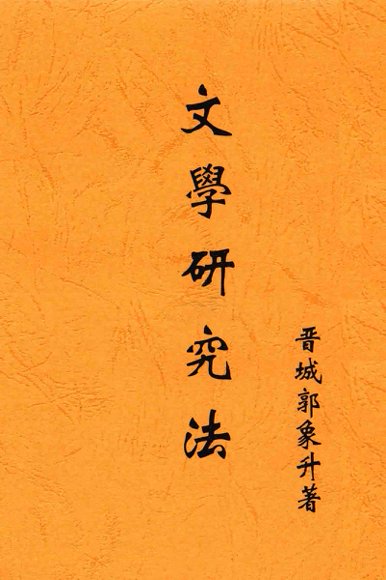 文學研究法
晋城郭象升著